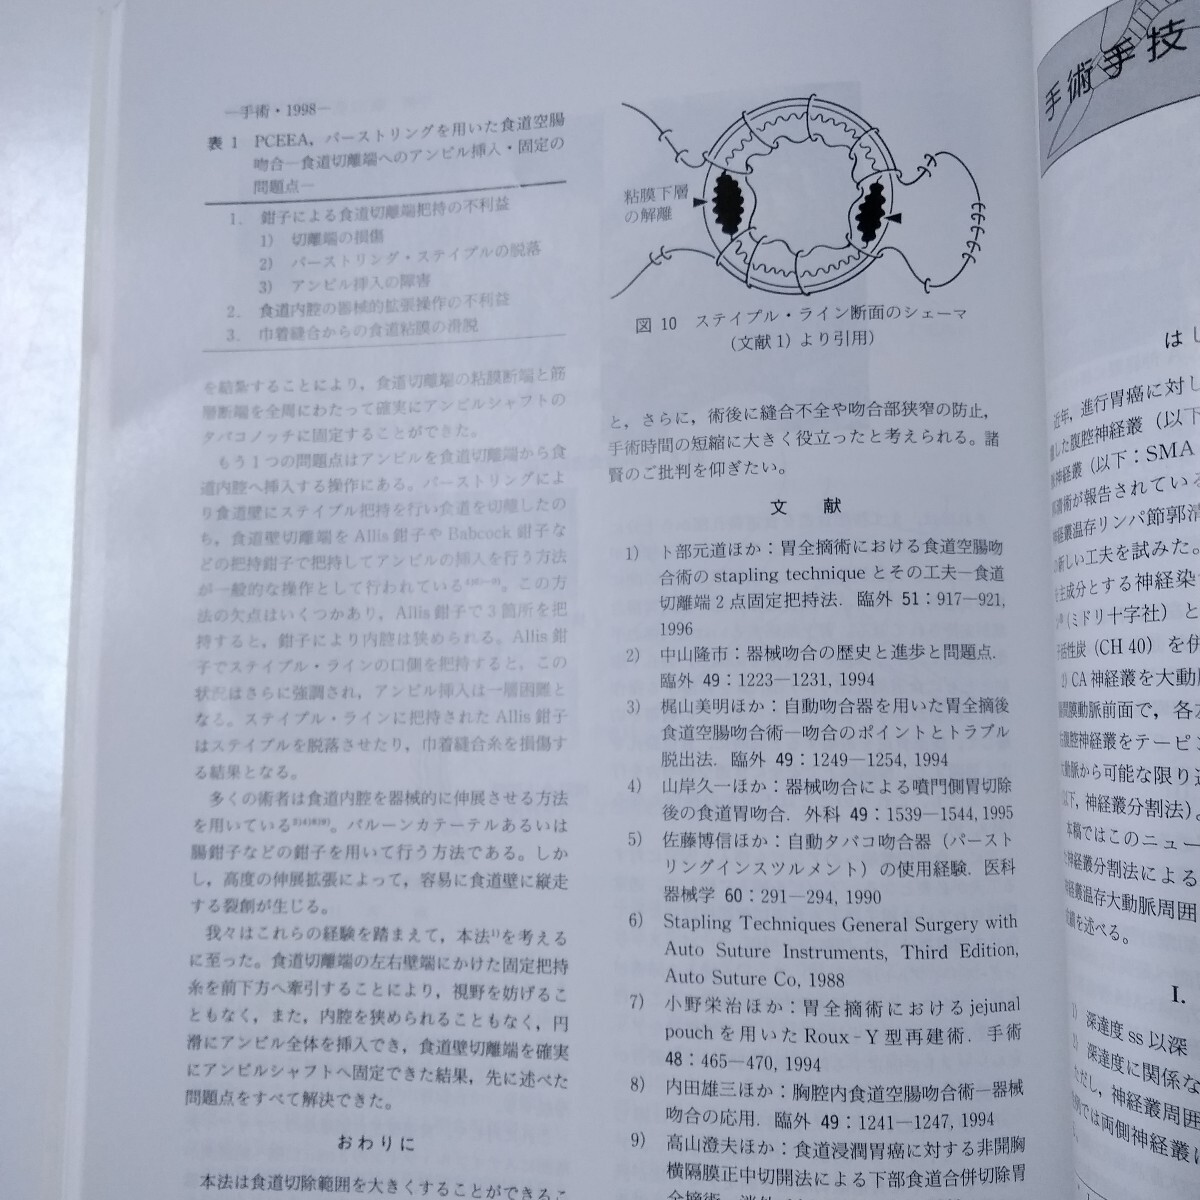 ―手術・1998―
表 1 PCEEA，パーストリングを用いた食道空腸
吻合―食道切離端へのアンビル挿入・固定の
問題点―
1. 鉗子による食道切離端把持の不利益
1) 切離端の損傷
2) パーストリング・ステイプルの脱落
3) アンビル挿入の障害
2. 食道内腔の器械的拡張操作の不利益
3. 巾着縫合からの食道粘膜の滑脱
を結紮することにより，食道切離端の粘膜断端と筋
層断端を全周にわたって確実にアンビルシャフトの
タバコノッチに固定することができた。
もう１つの問題点はアンビルを食道切離端から食
道内腔へ挿入する操作にある。パーストリングによ
り食道壁にステイプル把持を行い食道を切離したの
ち，食道壁切離端を Allis 鉗子や Babcock 鉗子な
どの把持鉗子で把持してアンビルの挿入を行う方法
が一般的な操作として行われている。この方
法の欠点はいくつかあり，Allis 鉗子で３箇所を把
持すると，鉗子により内腔は狭められる。Allis 鉗
子でステイプル・ラインの口側を把持すると，この
状況はさらに強調され，アンビル挿入は一層困難と
なる。ステイプル・ラインに把持された Allis 鉗子
はステイプルを脱落させたり，巾着縫合糸を損傷す
る結果となる。
多くの術者は食道内腔を器械的に伸展させる方法
を用いている。バルーンカテーテルあるいは
腸鉗子などの鉗子を用いて行う方法である。しか
し，高度の伸展拡張によって，容易に食道壁に縦走
する裂創が生じる。
我々はこれらの経験を踏まえて，本法¹⁾を考える
に至った。食道切離端の左右壁端にかけた固定把持
糸を前下方へ牽引することにより，視野を妨げるこ
ともなく，また，内腔を狭められることもなく，円
滑にアンビル全体を挿入でき，食道壁切離端を確実
にアンビルシャフトへ固定できた結果，先に述べた
問題点をすべて解決できた。
おわりに
本法は食道切除範囲を大きくすることができるこ
粘膜下層
の解離
図 10 ステイプル・ライン断面のシェーマ
（文献 1）より引用）
と，さらに，術後に縫合不全や吻合部狭窄の防止，
手術時間の短縮に大きく役立ったと考えられる。諸
賢のご批判を仰ぎたい。
文 献
1) 卜部元道ほか：胃全摘術における食道空腸吻
合術の stapling technique とその工夫―食道
切離端２点固定把持法．臨外 51：917―921,
1996
2) 中山隆市：器械吻合の歴史と進歩と問題点．
臨外 49：1223―1231, 1994
3) 梶山美明ほか：自動吻合器を用いた胃全摘後
食道空腸吻合術―吻合のポイントとトラブル
脱出法．臨外 49：1249―1254, 1994
4) 山岸久一ほか：器械吻合による噴門側胃切除
後の食道胃吻合．外科 49：1539―1544, 1995
5) 佐藤博信ほか：自動タバコ吻合器（パースト
リングインスツルメント）の使用経験．医科
器械学 60：291―294, 1990
6) Stapling Techniques General Surgery with
Auto Suture Instruments, Third Edition,
Auto Suture Co, 1988
7) 小野栄治ほか：胃全摘術における jejunal
pouch を用いた Roux-Y 型再建術．手術
48：465―470, 1994
8) 内田雄三ほか：胸腔内食道空腸吻合術―器械
吻合の応用．臨外 49：1241―1247, 1994
9) 高山澄夫ほか：食道浸潤胃癌に対する非開胸
横隔膜正中切開法による下部食道合併切除胃
手術手技
はじ
近年，進行胃癌に対し
した腹腔神経叢（以下
神経叢（以下：SMA
術が報告されている
神経叢温存リンパ節郭清
新しい工夫を試みた。
を主成分とする神経染
（ミドリ十字社）と
活性炭（CH 40）を併
1) CA 神経叢を大動脈
間膜動脈前面で，各
腹腔神経叢をテーピン
大動脈から可能な限り
以下，神経叢分割法）。
本稿ではこのニュー
神経叢分割法による
神経叢温存大動脈周囲
績を述べる。
I.
1) 深達度 ss 以深
2) 深達度に関係な
ただし，神経叢周囲
例では両側神経叢に